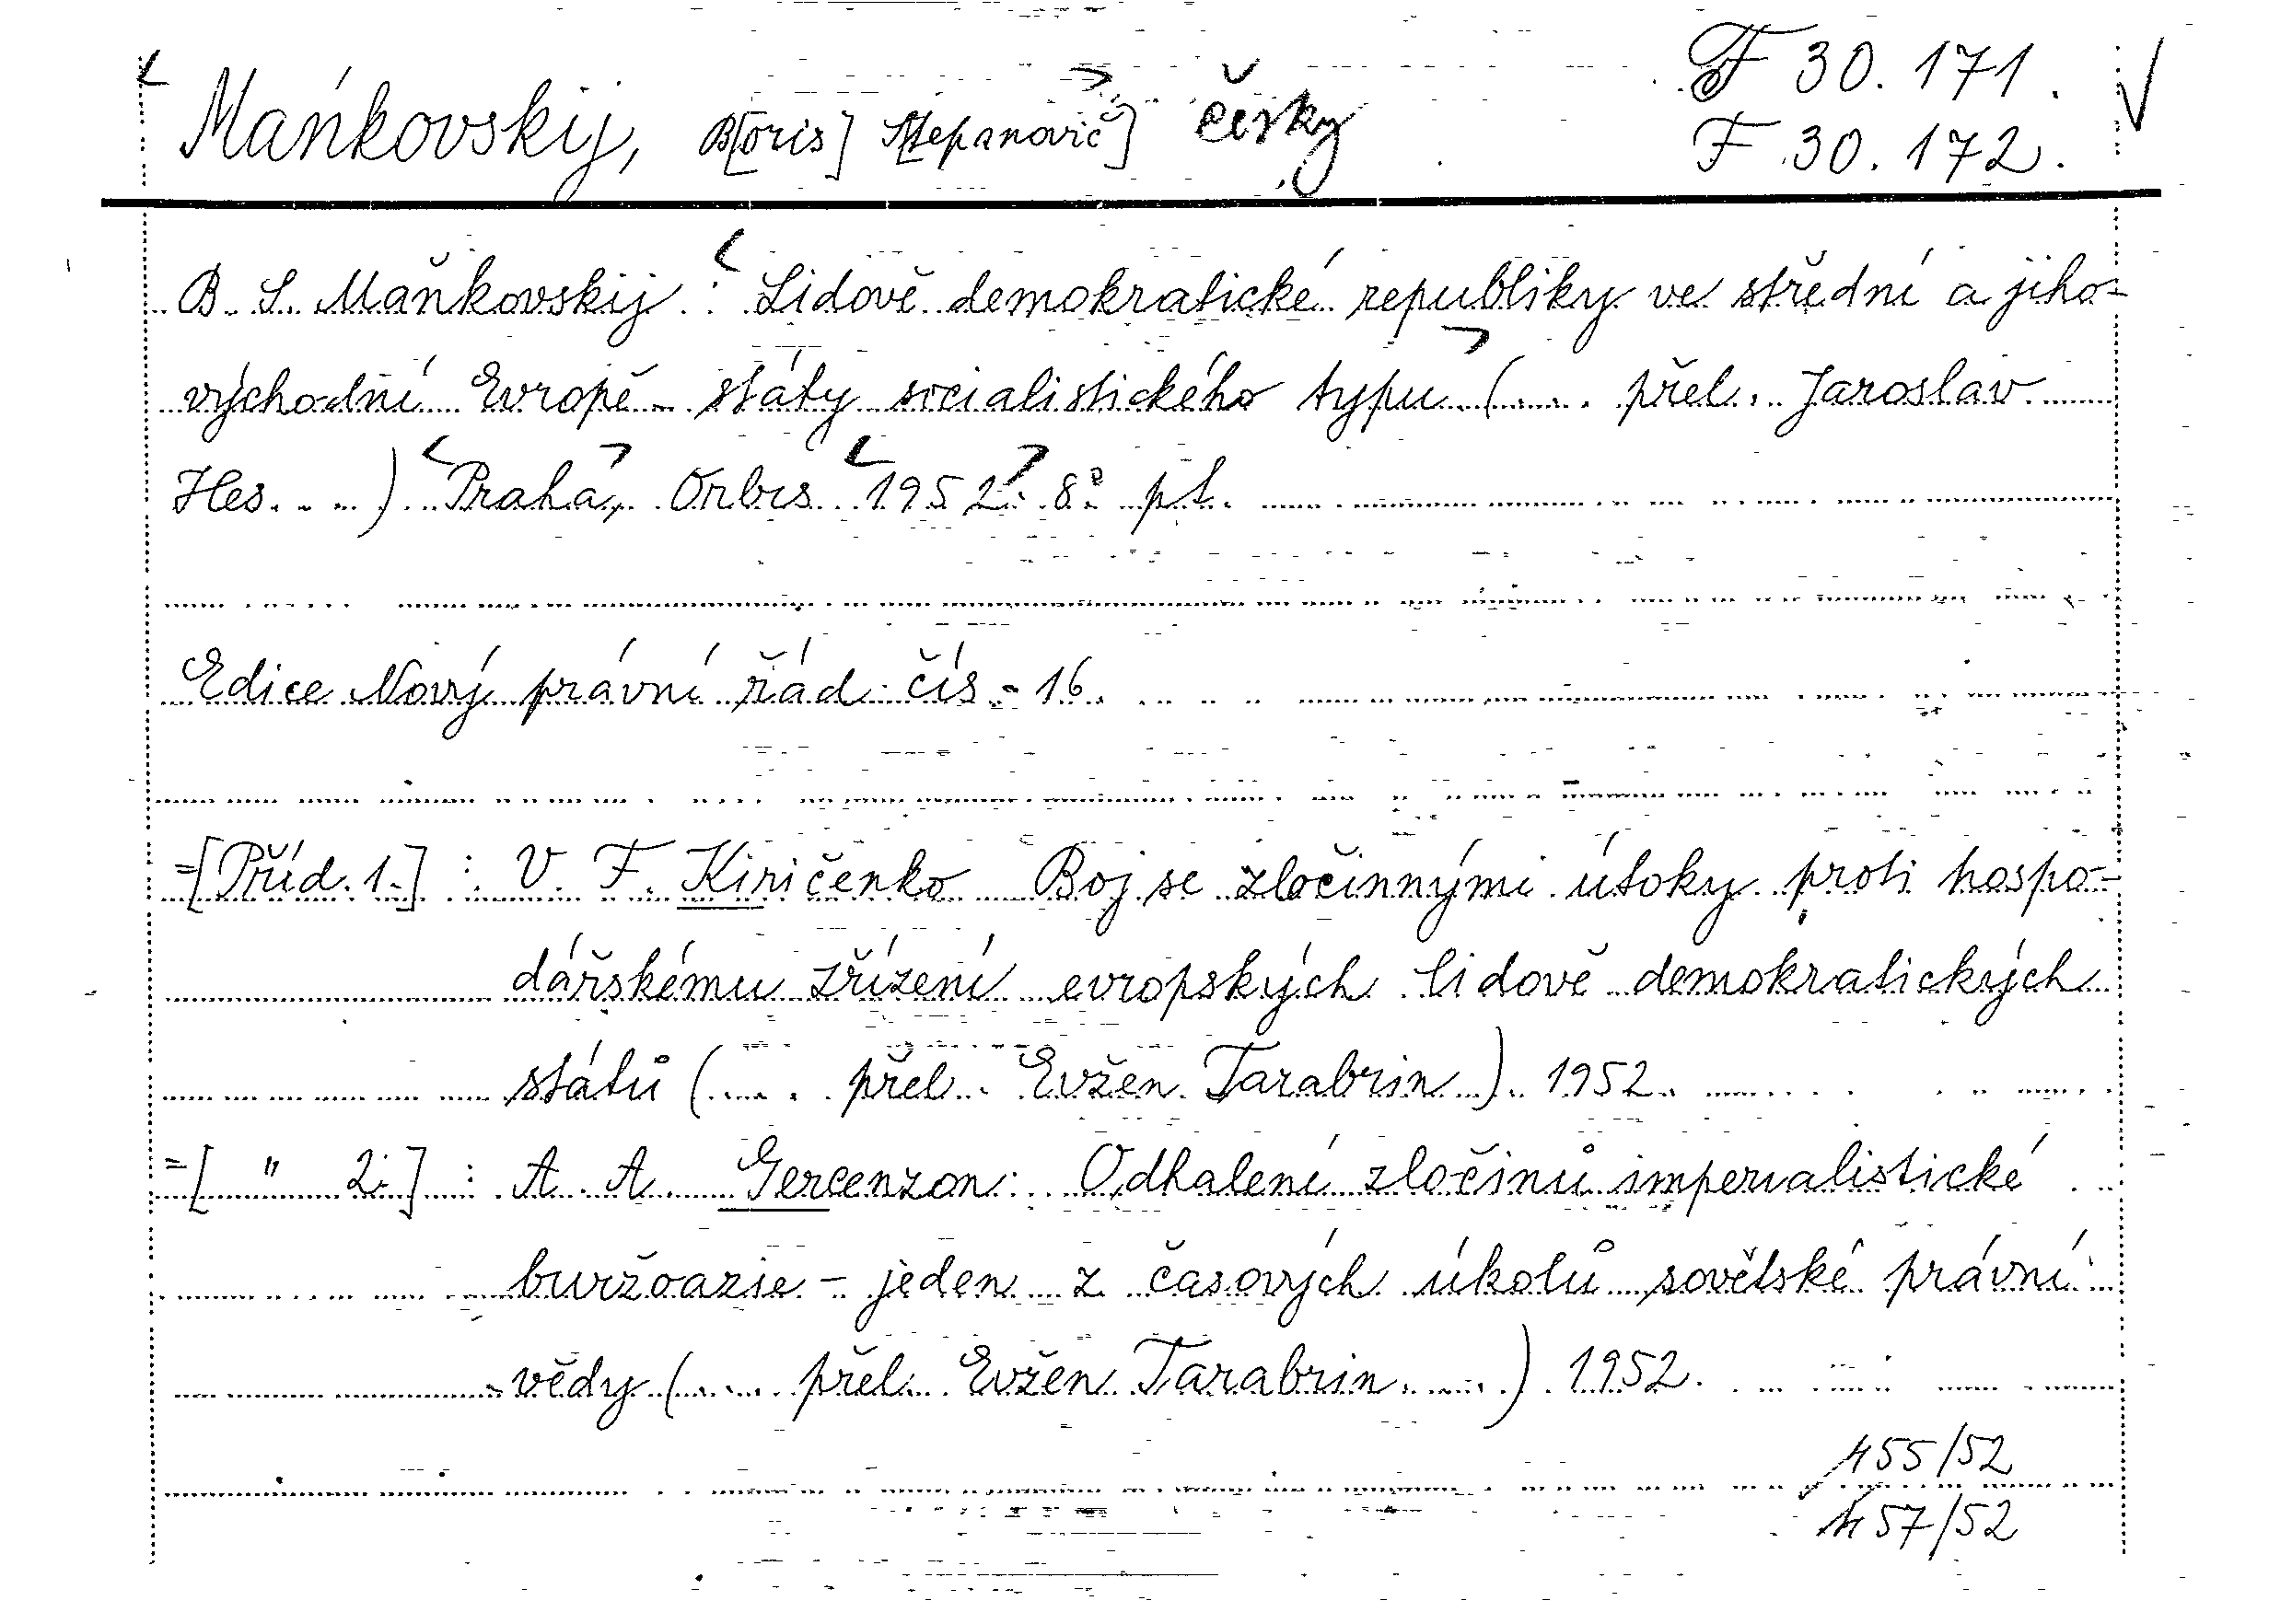 Maňkovskij, B[oris] S[tepanovič] česky F 30.171.
F 30.172.
B. S. Maňkovskij: Lidově demokratické republiky ve střední a jiho-
východní Evropě - státy socialistického typu (.... přel. Jaroslav
Hes. ...) Praha, Orbis 1952. 8° pt.
Edice Nový právní řád čís. 16.
=[Příd. 1.] : V. F. Kiričenko Boj se zločinnými útoky proti hospo-
dářskému zřízení evropských lidově demokratických
států (.... přel. Evžen Tarabrin) 1952.
=[ " 2.] : A. A. Gercenzon: Odhalení zločinů imperialistické
buržoazie - jeden z časových úkolů sovětské právní
vědy (.... přel. Evžen Tarabrin ....) 1952.
455/52
457/52